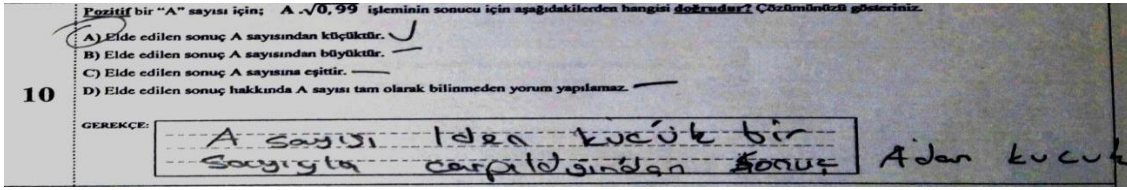 Pozitif bir "A" sayısı için; A .√0, 99 işleminin sonucu için aşağıdakilerden hangisi doğrudur? Çözümünüzü gösteriniz.
A) Elde edilen sonuç A sayısından küçüktür.
B) Elde edilen sonuç A sayısından büyüktür.
C) Elde edilen sonuç A sayısına eşittir.
10 D) Elde edilen sonuç hakkında A sayısı tam olarak bilinmeden yorum yapılamaz.
GEREKÇE: A sayısı 1den küçük bir
Sayıyla çarpıldığından Sonuç A'dan kucuk